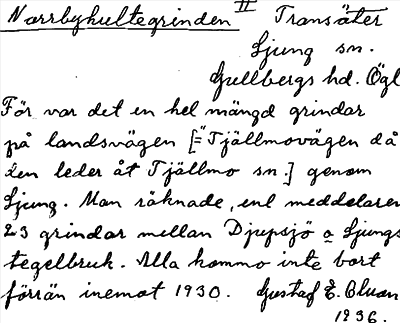 Norrbykultegrinden II Transäter
Ljung sn.
Gullbergs hd. Ögl
För var det en hel mängd grindar
på landsvägen [="Tjällmovägen då
den leder åt Tjällmo sn.] genom
Ljung. Man räknade, enl meddelaren
23 grindar mellan Djupsjö o Ljungs
tegelbruk. Alla kommo inte bort
förrän inemot 1930. Gustaf E. Oluson
1936.